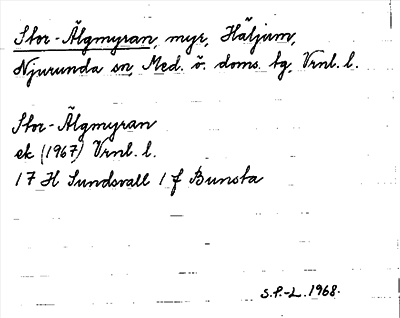 Stor-Älgmyran, myr, Häljum,
Njurunda sn, Med. ö. doms. tg, Vrnl. l.
Stor-Älgmyran
ek (1967) Vrnl. l.
17 H Sundsvall 1 f Bunsta
S.P.-L. 1968.